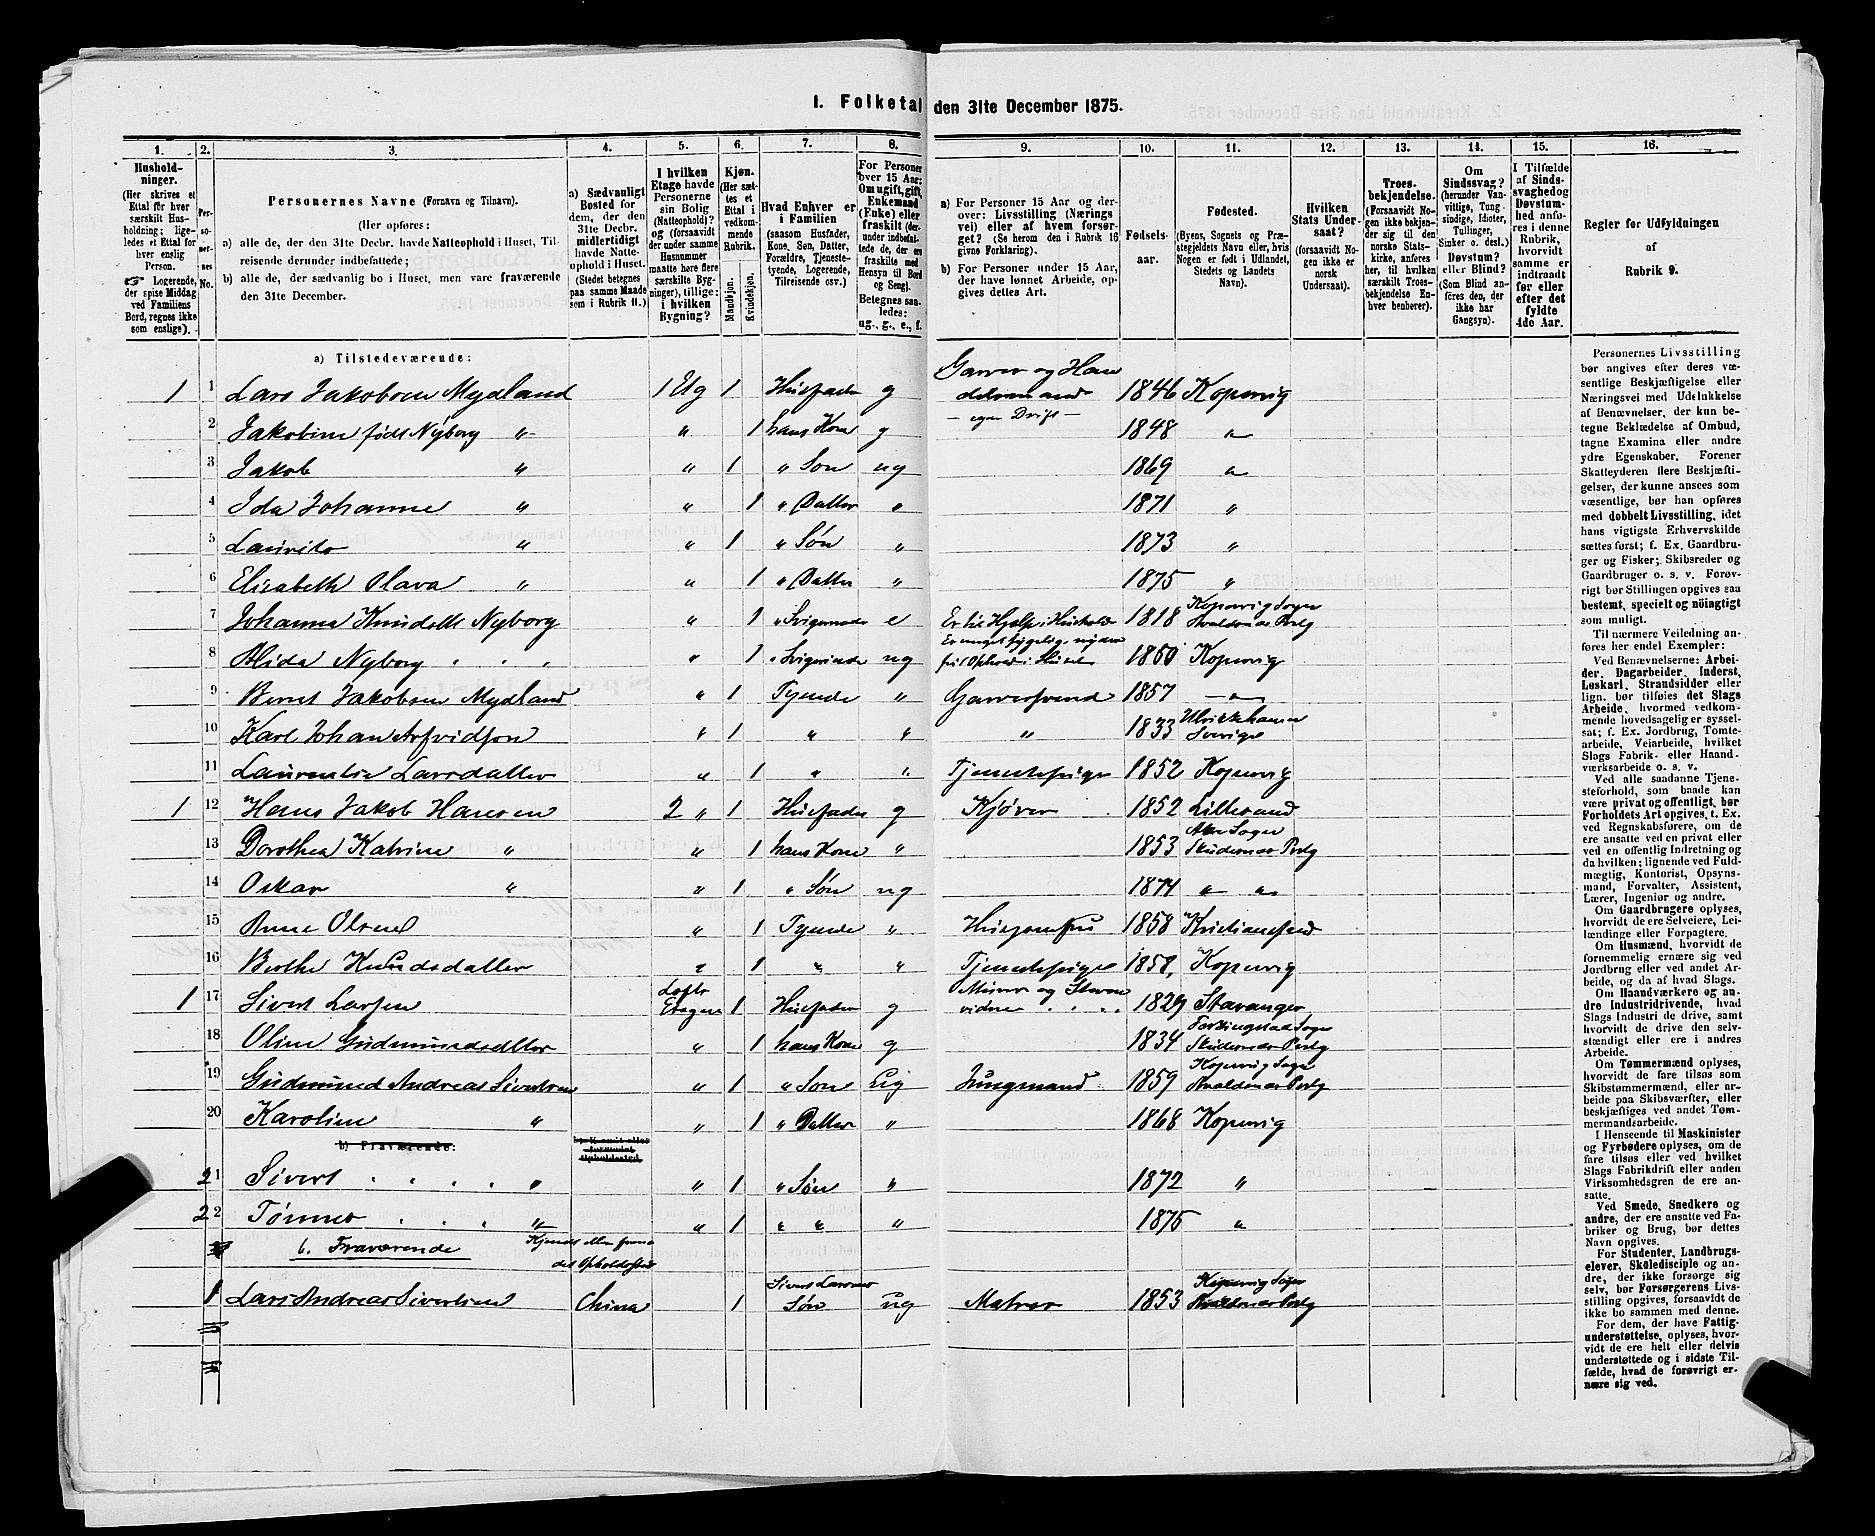 I. Folketal den 31te December 1875.
1. 2. 3. 4. 5. 6. 7. 8. 9. 10. 11. 12. 13. 14. 15. 16.
Hushold-
ninger.
(Her skrives et
Ettal for hver
særskilt Hus-
holdning; lige-
ledes et Ettal for
hver enslig
Person.
☞ Logerende,
der spise Middag
ved Familiens
Bord, regnes ikke
som enslige).
Per-
so-
ner-
nes
No.
Personernes Navne (Fornavn og Tilnavn).
(Her opføres:
a) alle de, der den 31te Decbr. havde Natteophold i Huset, Til-
reisende derunder indbefattede;
b) alle de, der sædvanlig bo i Huset, men vare fraværende
den 31te December.
a) Sædvanligt
Bosted for
dem, der den
31te Decbr.
midlertidigt
havde Natte-
ophold i Huset.
(Stedet betegnes
paa samme Maade
som i Rubrik 11.)
I hvilken
Etage havde
Personerne
sin Bolig
(Natteophold)?
og (forsaavidt
der under samme
Husnummer
maatte høre flere
særskilte Byg-
ninger), tillige:
i hvilken
Bygning?
Kjøn.
(Her sæt-
tes et
Ettal i
vedkom-
mende
Rubrik.
Mandkjøn.
Kvindekjøn.
Hvad Enhver er
i Familien
(saasom Husfader,
Kone, Søn, Datter,
Forældre, Tjeneste-
tyende, Logerende,
Tilreisende osv.)
For Personer
over 15 Aar:
Om ugift, gift,
Enkemand
(Enke) eller
fraskilt (der-
under indbefat-
tede de, der ere
fraskilte med
Hensyn til Bord
og Seng).
Betegnes saa-
ledes:
ug., g., e., f.
a) For Personer 15 Aar og der-
over: Livsstilling (Nærings
vei) eller af hvem forsør-
get? (Se herom den i Rubrik 16
givne Forklaring).
b) For Personer under 15 Aar,
der have lønnet Arbeide, op-
gives dettes Art.
Fødsels-
aar.
Fødested.
(Byens, Sognets og Præ-
stegjeldets Navn eller, hvis
Nogen er født i Udlandet,
Stedets og Landets
Navn).
Hvilken
Stats Under-
saat?
(forsaavidt No-
gen ikke er
norsk
Undersaat).
Troes-
bekjendelse.
(Forsaavidt No-
gen ikke bekjen-
der sig til den
norske Stats-
kirke, anføres
her, til hvilken
særskilt Troes-
bekjendelse En-
hver henhører).
Om
Sindssvag?
(herunder Van-
vittige, Tung-
sindige, Idioter,
Tullinger,
Sinker o. desl.)
Døvstum?
eller Blind?
(Som Blind an-
føres den, der
ikke har
Gangsyn).
I Tilfælde
af Sinds-
svaghed og
Døvstum-
hed anfø-
res i denne
Rubrik,
hvorvidt
samme er
indtraadt
før eller
efter det
fyldte
4de Aar.
Regler for Udfyldningen
af
Rubrik 9.
a) Tilstedeværende:
1 1 Lars Jakobsen Mydland 1 Etg 1 Husfader g Garver og Han
delsmand 1846 Kopervig
- egen Drift -
2 Jakobine født Nyborg " " 1 hans Kone g 1848 "
3 Jakob " " 1 " Søn ug 1869 "
4 Ida Johanne " " 1 " Datter " 1871 "
5 Laurits " " 1 " Søn " 1873 "
6 Elisabeth Olava " " 1 " Datter " 1875 "
7 Johanna Knudsdtr Nyborg " 1 " Svigermoder e Er til Hjælp i Husholdn 1818 Kopervig Sogn
8 Alida Nyborg " 1 " Svigerinde ug 1850 Kopervig
9 Bernt Jakobsen Mydland " 1 Tyende " Garversvend 1857 — " —
10 Karl Johan Arfvidson " 1 " " " 1833 Ulrikehamn
Sverige
11 Laurentse Larsdatter " 1 " " Tjenestepige 1852 Kopervig
1 12 Hans Jakob Hansen 2 " 1 Husfader g Kjøver 1852 Lillesand
13 Dorothea Katrine " " 1 hans Kone " 1853 Aker Sogn
Skudenær Pstg
14 Oskar " " 1 " Søn ug 1874 " "
15 Anne Olsen " 1 Tyende " Husjomfru 1858 Kristianssand
16 Berthe Knudsdatter " 1 " " Tjenestepige 1858, Kopervig
1 17 Sivert Larsen Lofts
Etagen 1 Husfader g Murer og Steen
1829 Stavanger
18 Oline Gudmundsdtter " 1 hans Kone g 1834 Ferkingstad Sogn
Skudenær Pstg
19 Gudmund Andreas Sivertsen " 1 " Søn ug Jungmand 1859 Kopervig Sogn
20 Karoline " " 1 " Datter " 1868 Kopervig
b) Fraværende:
21 Sivert " " 1 " Søn " 1872 "
22 Tønnes " " 1 " " " 1875 "
b. Fraværende Kjendt eller formo
det Opholdssted
1 Lars Andreas Sivertsen China 1 Sivert Larsens
Søn ug Matros 1853 Kopervig Sogn
Personernes Livsstilling
bør angives efter deres væ-
sentlige Beskjæftigelse eller
Næringsvei med Udelukkelse
af Benævnelser, der kun be-
tegne Beklædelse af Ombud,
tagne Examina eller andre
ydre Egenskaber. Forener
Skatteyderen flere Beskjæfti-
gelser, der kunne ansees som
væsentlige, bør han opføres
med dobbelt Livsstilling, idet
hans vigtigste Erhvervskilde
sættes først; f. Ex. Gaardbru-
ger og Fisker; Skibsreder og
Gaardbruger o. s. v. Forøv-
rigt bør Stillingen opgives saa
bestemt, specielt og nøiagtigt
som muligt.
Til nærmere Veiledning an-
føres her endel Exempler:
Ved Benævnelserne: Arbei-
der, Dagarbeider, Inderst,
Løskarl, Strandsidder eller
lign. bør tilføies det Slags
Arbeide, hvormed vedkom-
mende hovedsagelig er syssel-
sat; f. Ex. Jordbrug, Tomte-
arbeide, Veiarbeide, hvilket
Slags Fabrik- eller Haand-
værksarbeide o. s. v.
Ved alle saadanne Tjene-
steforhold, som baade kan
være privat og offentligt, bør
Forholdets Art opgives, f. Ex.
ved Regnskabsførere, om de
ere ansatte ved en privat eller
ved en offentlig Indretning og
da hvilken; lignende ved Fuld-
mægtig, Kontorist, Opsyns-
mand, Forvalter, Assistent,
Lærer, Ingeniør og andre.
Om Gaardbrugere oplyses,
hvorvidt de ere Selveiere, Lei-
lændinge eller Forpagtere.
Om Husmænd, hvorvidt de
fornemmelig ernære sig ved
Jordbrug eller ved andet Ar-
beide, og da af hvad Slags.
Om Haandværkere og an-
dre Industridrivende, hvad
Slags Industri de drive, samt
hvorvidt de drive den selv-
stændigt eller ere i andres
Arbeide.
Om Tømmermænd oplyses,
hvorvidt de fare tilsøs som
Skibstømmermænd, eller ar-
beide paa Skibsværfter, eller
beskjæftiges ved andet Tøm-
mermandsarbeide.
I Henseende til Maskinister
og Fyrbødere oplyses, om de
fare tilsøs eller ved hvilket
Slags Fabrikdrift eller anden
Virksomhedsgren de ere an-
satte.
Ved Smede, Snedkere og
andre, der ere ansatte ved Fa-
briker og Brug, bør dettes
Navn opgives.
For Studenter, Landbrugs-
elever, Skoledisciple og an-
dre, der ikke forsørge sig
selv, bør Forsørgerens Livs-
stilling opgives, forsaavidt de
ikke bo sammen med denne.
For dem, der have Fattig-
understøttelse, oplyses, hvor-
vidt de ere helt eller delvis
understøttede og i sidste Til-
fælde, hvad de forøvrigt er-
nære sig ved.